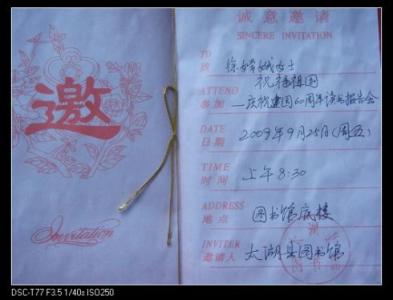 邀
Invitation
诚意邀请
SINCERE INVITATION
TO
致
女士
祝福祖国
ATTEND
参加 —庆祝建国60周年读书报告会
DATE
日期 2009年9月25日(周五)
TIME
时间 上午8:30
ADDRESS
地点 图书馆底楼
INVITER
邀请人 太湖县图书馆
DSC-T77 F3.5 1/40s ISO250